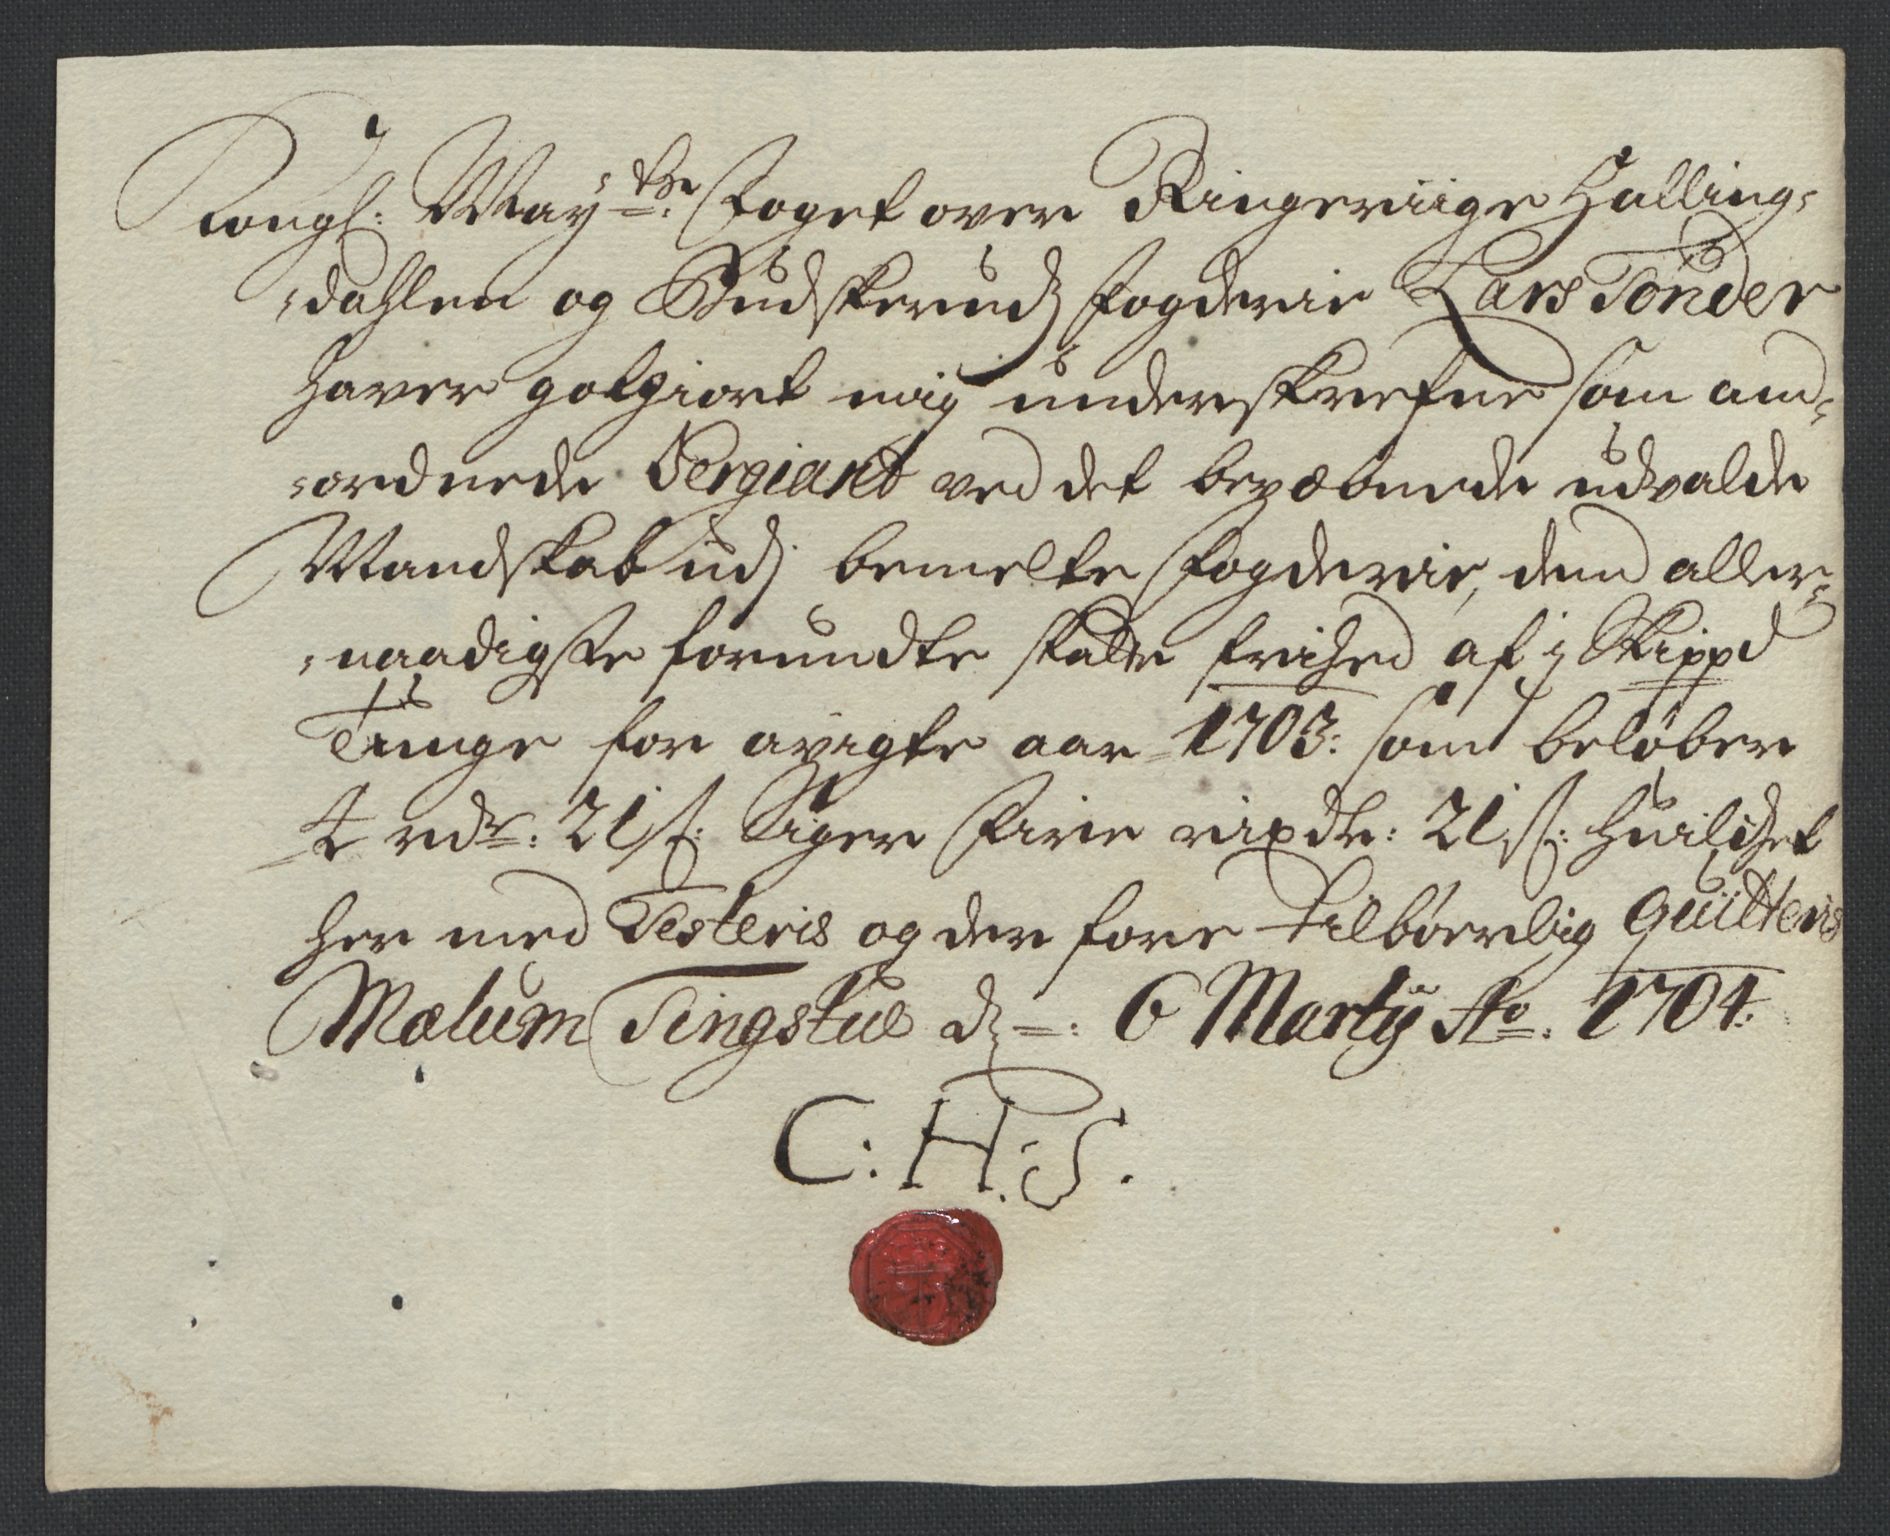 Kongl: May:ts: Foget over Ringeriige Halling-
-dahlen og Budskeruds Fogderie Lars Tönder
Haver gotgiort mig underskrefne som an-
-ordnede Sergiant ved det bevæbnede udvalde
Mandskab udj bemelte Fogderie, dend aller-
-naadigste forundte skatte frihed af j Skippd
Tunge for avigte aar 1703: som beløber
4 rdr: 21 s: Siger Firie rixdlr: 21 s: Huilchet
her med Testeris og der fore tilbørlig Quitteris
Mælum Tingstue d: 6 Martij Ao. 1704:
C: H: S.